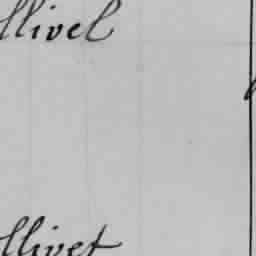 llivel
llivet